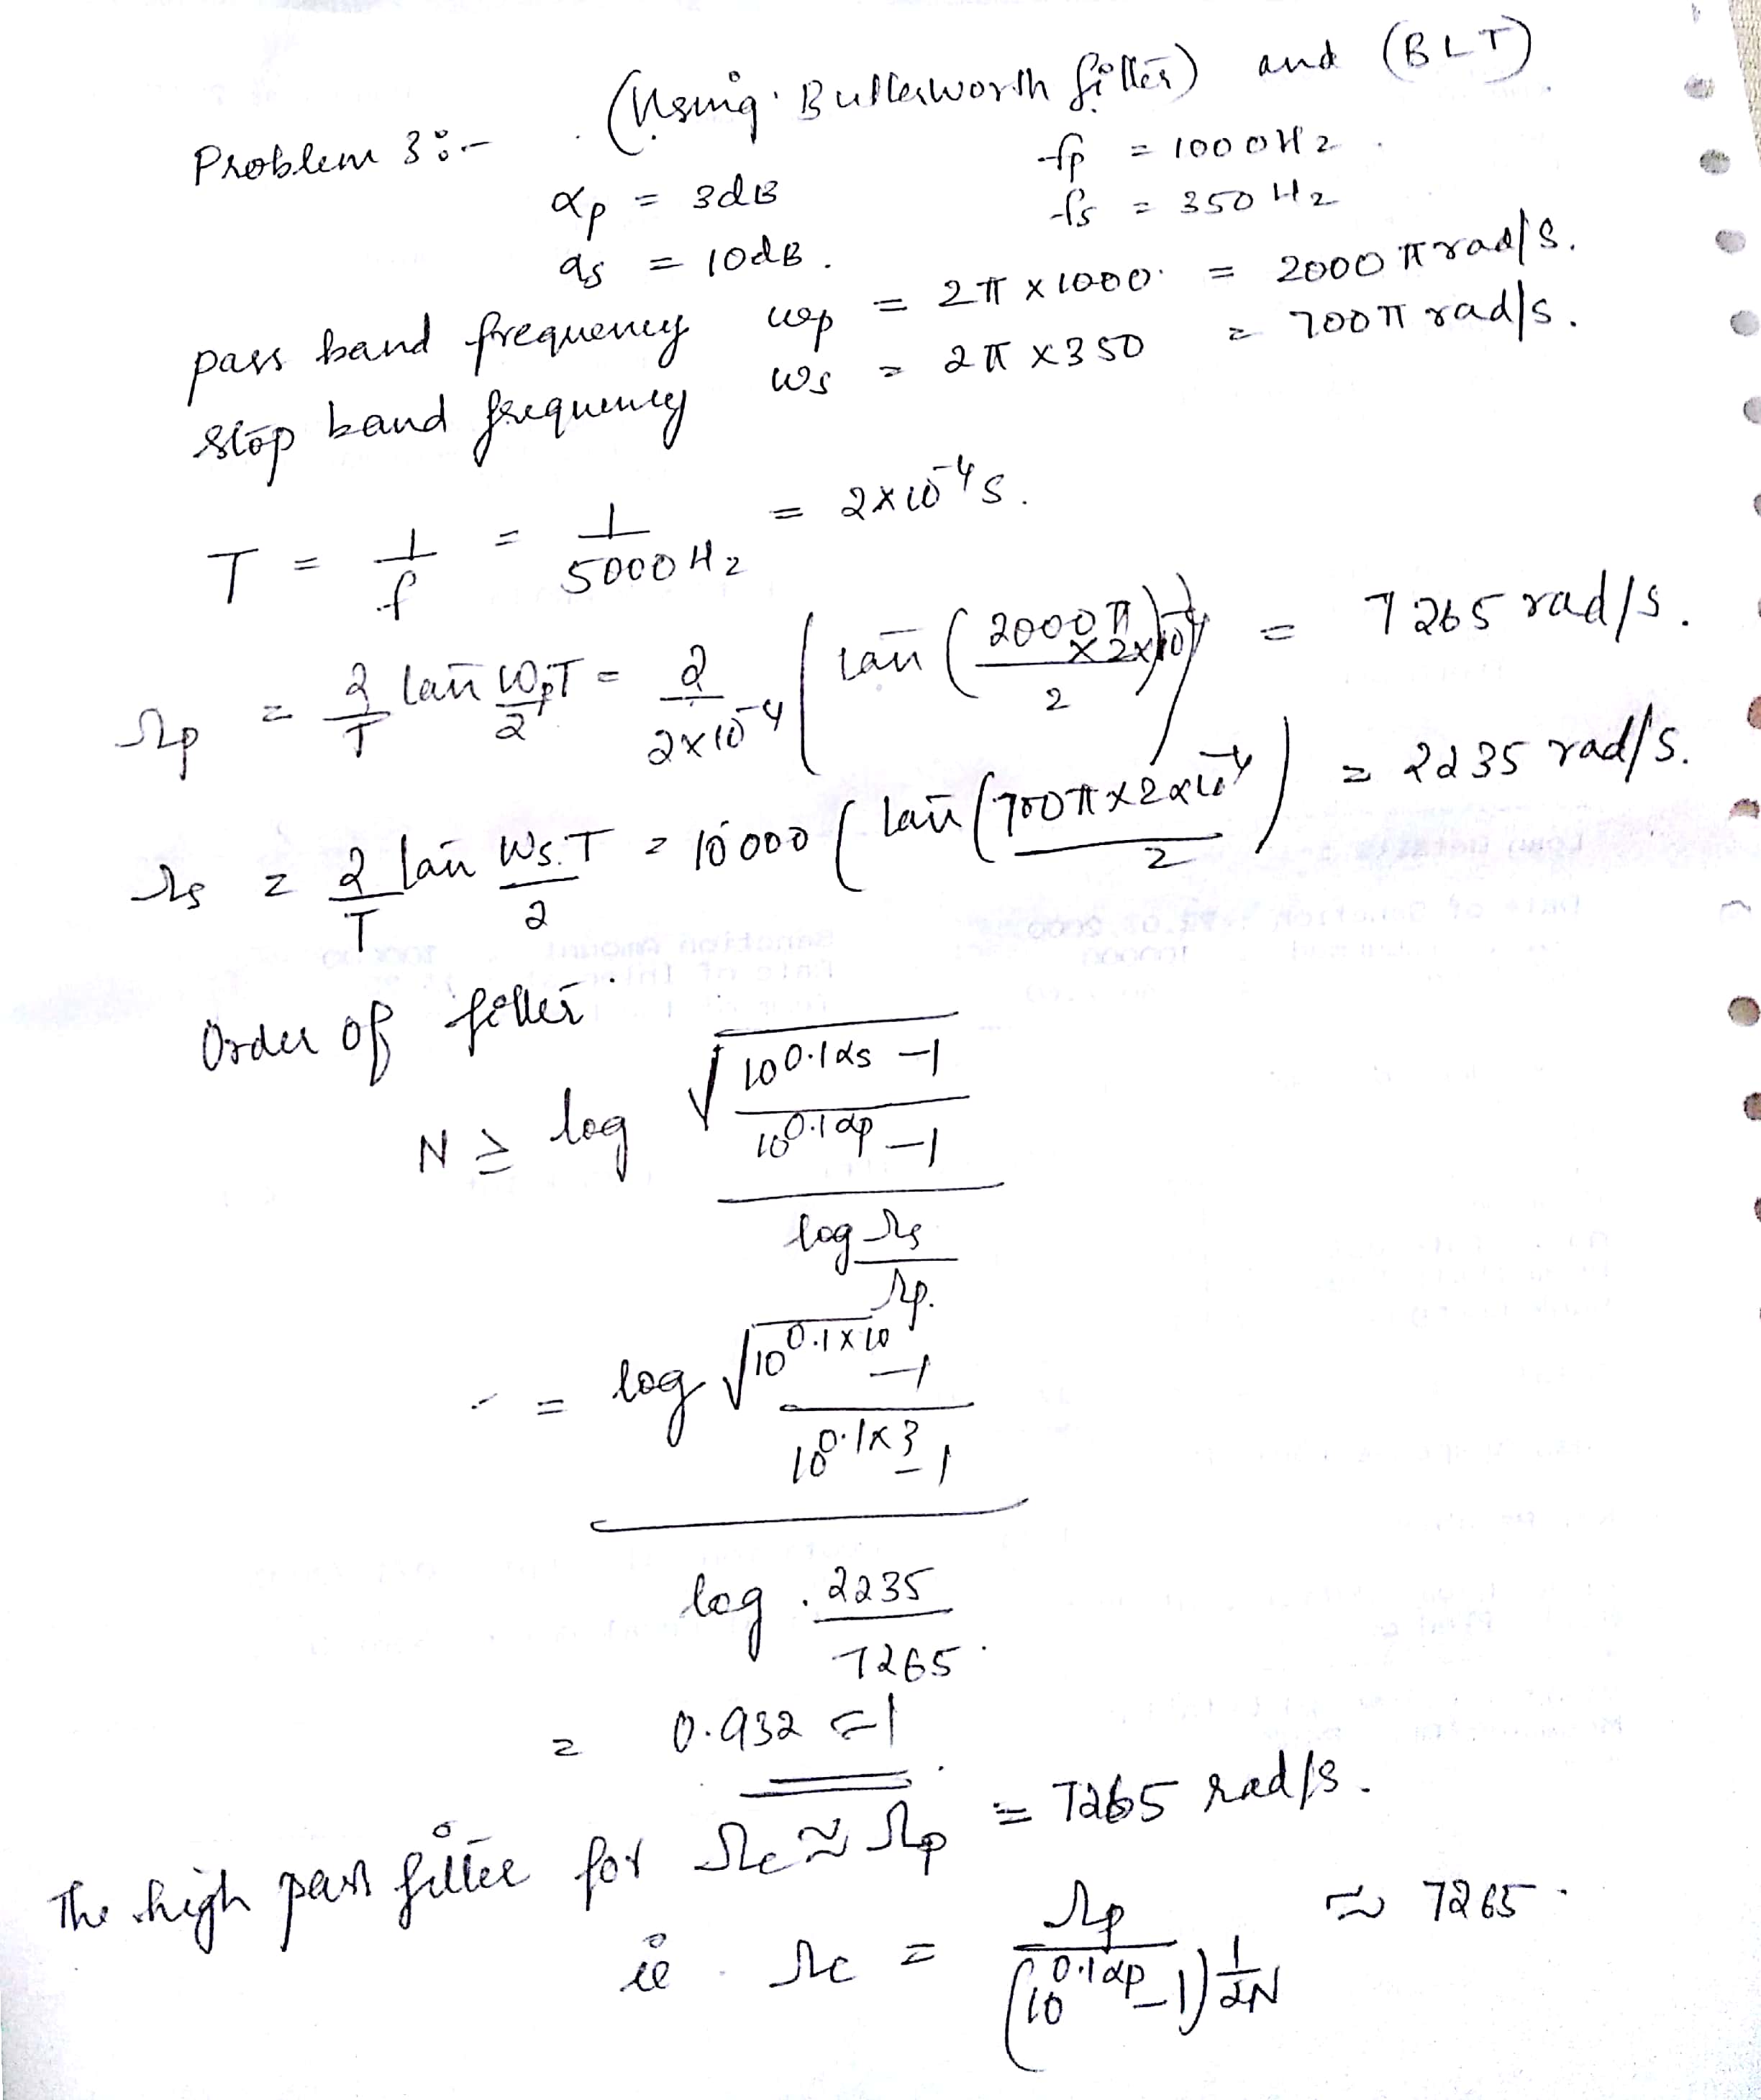 Problem 3:- (Using Butterworth filter) and (BLT)
αp = 3dB fp = 1000Hz
αs = 10dB. fs = 350Hz
pass band frequency ωp = 2π x 1000 = 2000 π rad/s.
stop band frequency ωs = 2π x 350 = 700π rad/s.
T = 1/f = 1/5000Hz = 2x10^-4 s.
Ωp = 2/T tan ωpT/2 = 2/(2x10^-4) (tan (2000π x 2x10^-4 / 2)) = 7265 rad/s.
Ωs = 2/T tan ωs.T/2 = 10000 (tan (700π x 2x10^-4 / 2)) = 2235 rad/s.
Order of filter
N ≥ log √((10^0.1αs -1)/(10^0.1αp -1)) / log Ωs/Ωp.
= log √((10^0.1x10 -1)/(10^0.1x3 -1)) / log 2235/7265.
= 0.932 = 1
The high pass filter for Ωc ≈ Ωp = 7265 rad/s.
ie Ωc = Ωp/(10^0.1αp -1)^1/2N ≈ 7265.